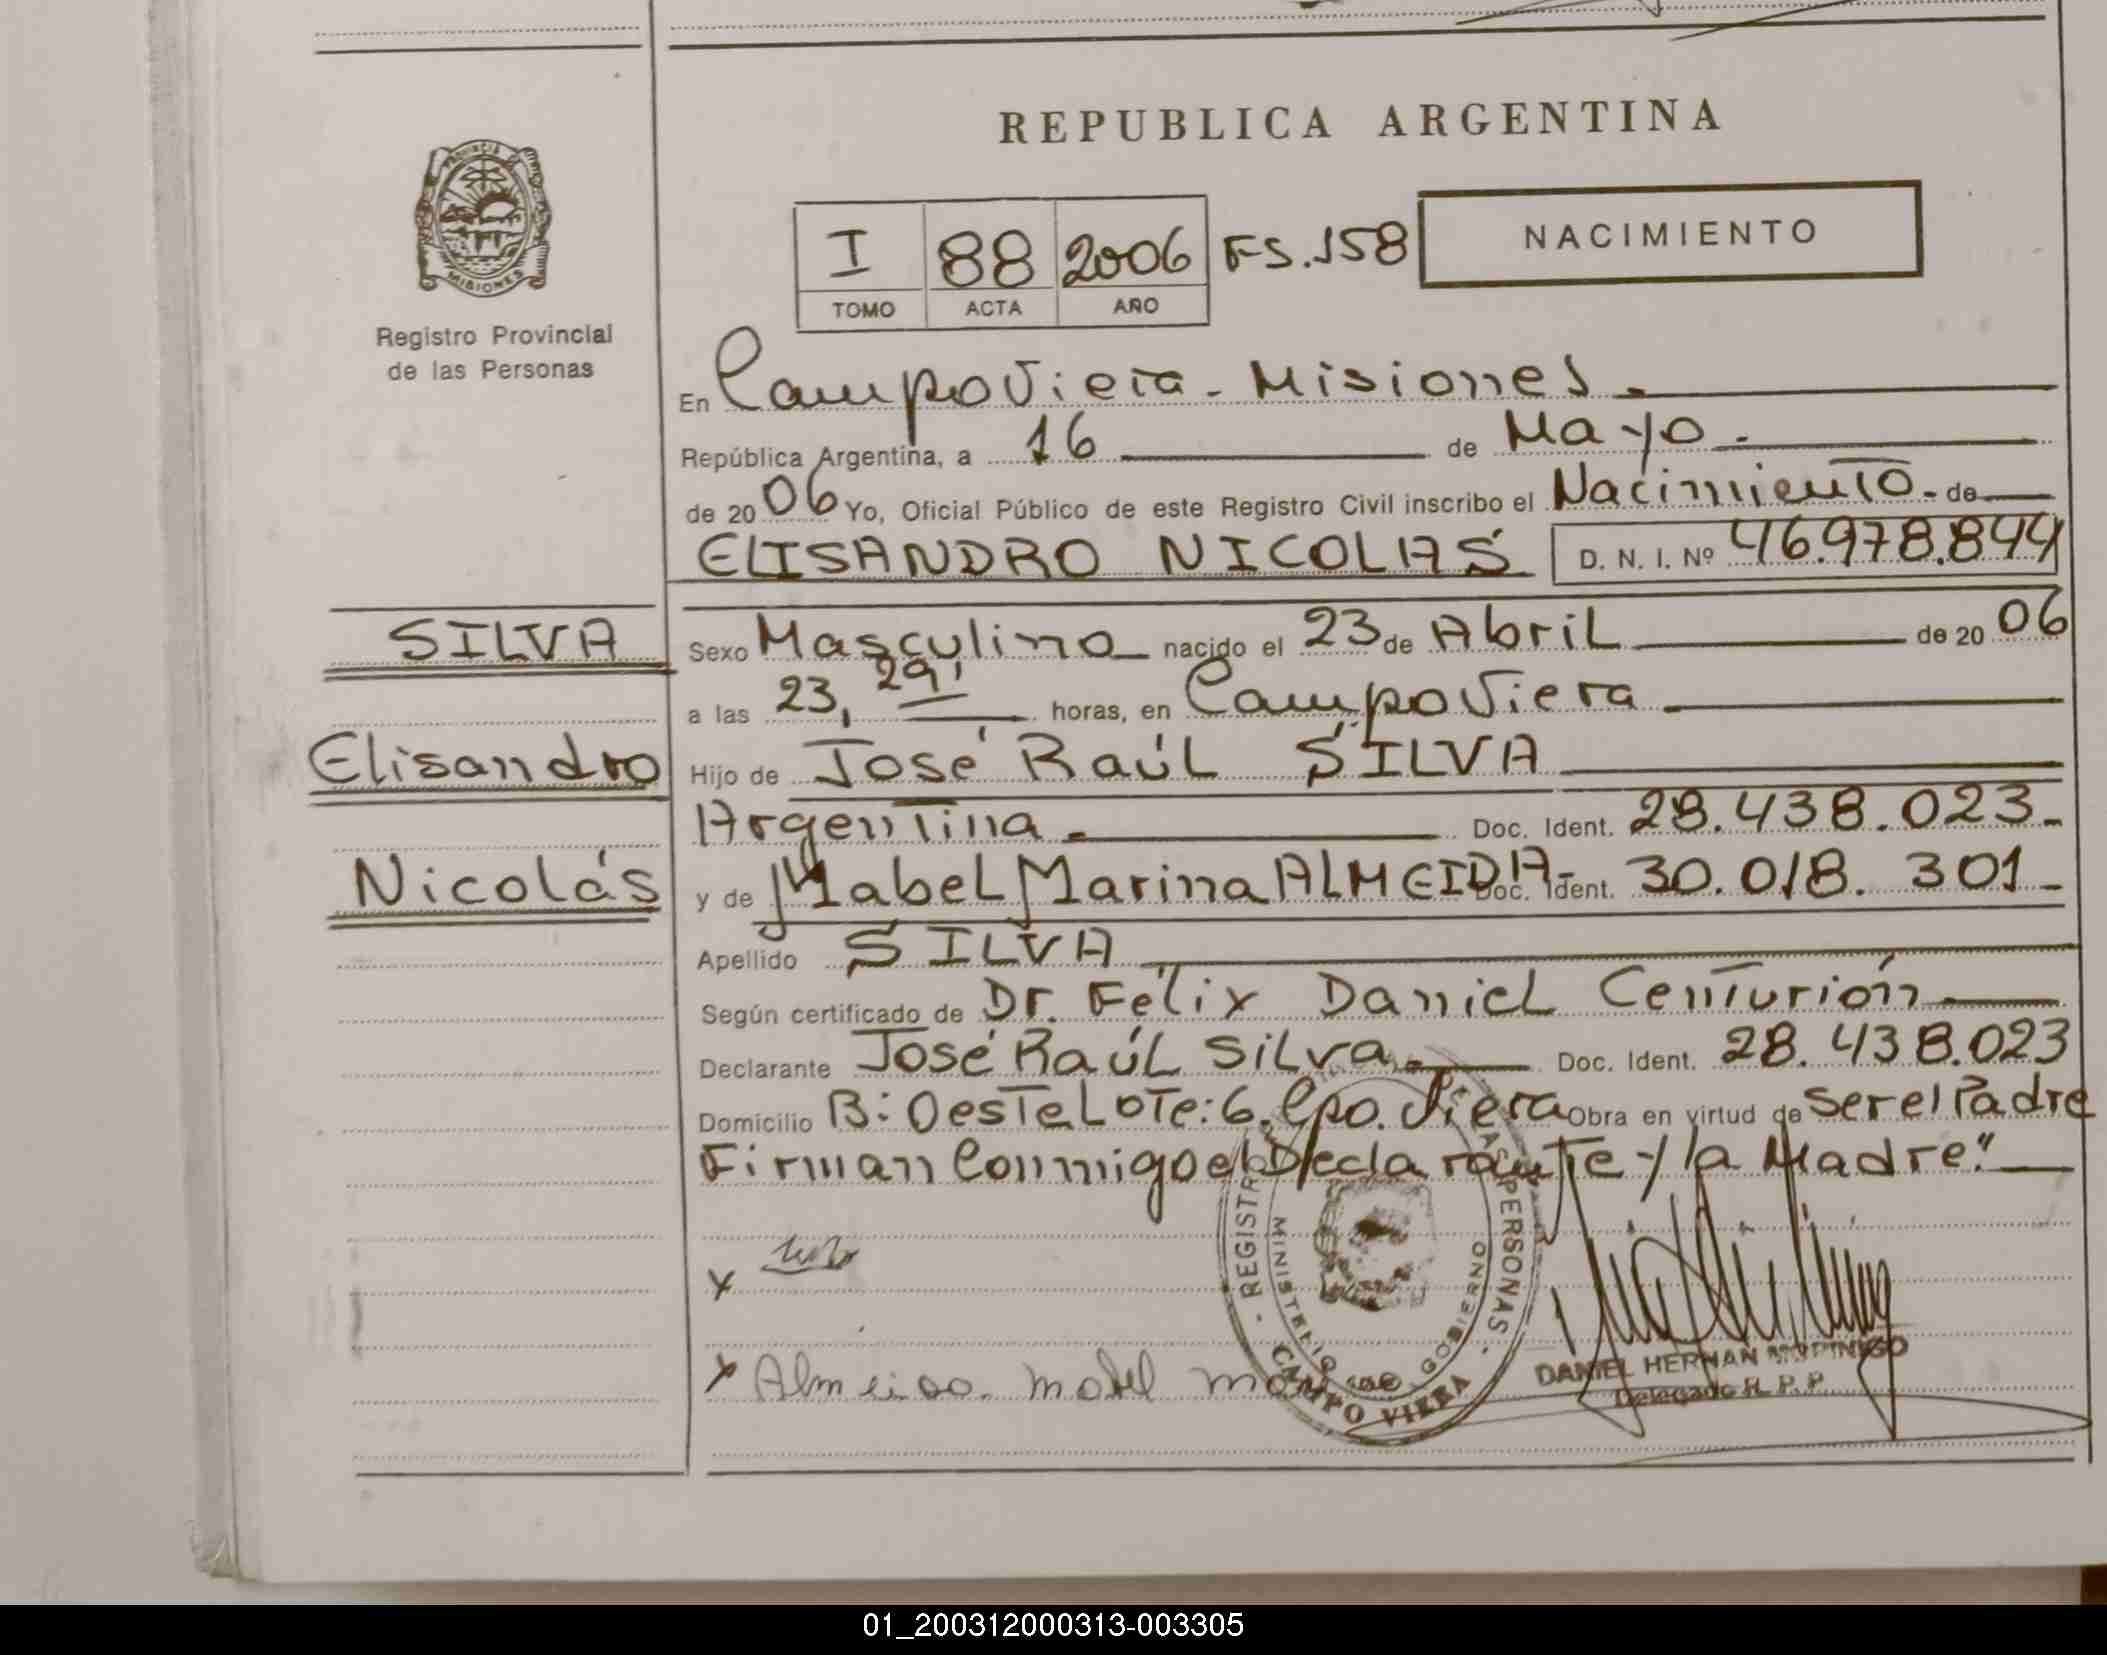 REPUBLICA ARGENTINA
NACIMIENTO
I 88 2006 FS.158
TOMO ACTA AÑO
PROVINCIA DE MISIONES
Registro Provincial
de las Personas
En Campo Viera - Misiones.
República Argentina, a 16 de Mayo.
de 2006 Yo, Oficial Público de este Registro Civil inscribo el Nacimiento. de
ELISANDRO NICOLAS D. N. I. Nº 46.978.844
SILVA
Sexo Masculino nacido el 23 de Abril de 2006
a las 23, 29' horas, en Campo Viera
Elisandro
Hijo de José Raúl SILVA
Argentina. Doc. Ident. 28.438.023.
Nicolás
y de Mabel Marina ALMEIDA- Doc. Ident. 30.018.301
Apellido SILVA
Según certificado de Dr. Félix Daniel Centurión
Declarante José Raúl Silva. Doc. Ident. 28.438.023
Domicilio B: Oeste Lote: 6. Cpo. Viera Obra en virtud de Ser el Padre
Firman Conmigo el Declarante y la Madre."
x
x Almeida. mabel
REGISTRO PERSONAS
MINISTERIO DE GOBIERNO
CAMPO VIERA
DANIEL HERNAN MORINIGO
Delegado R. P. P.
01_200312000313-003305